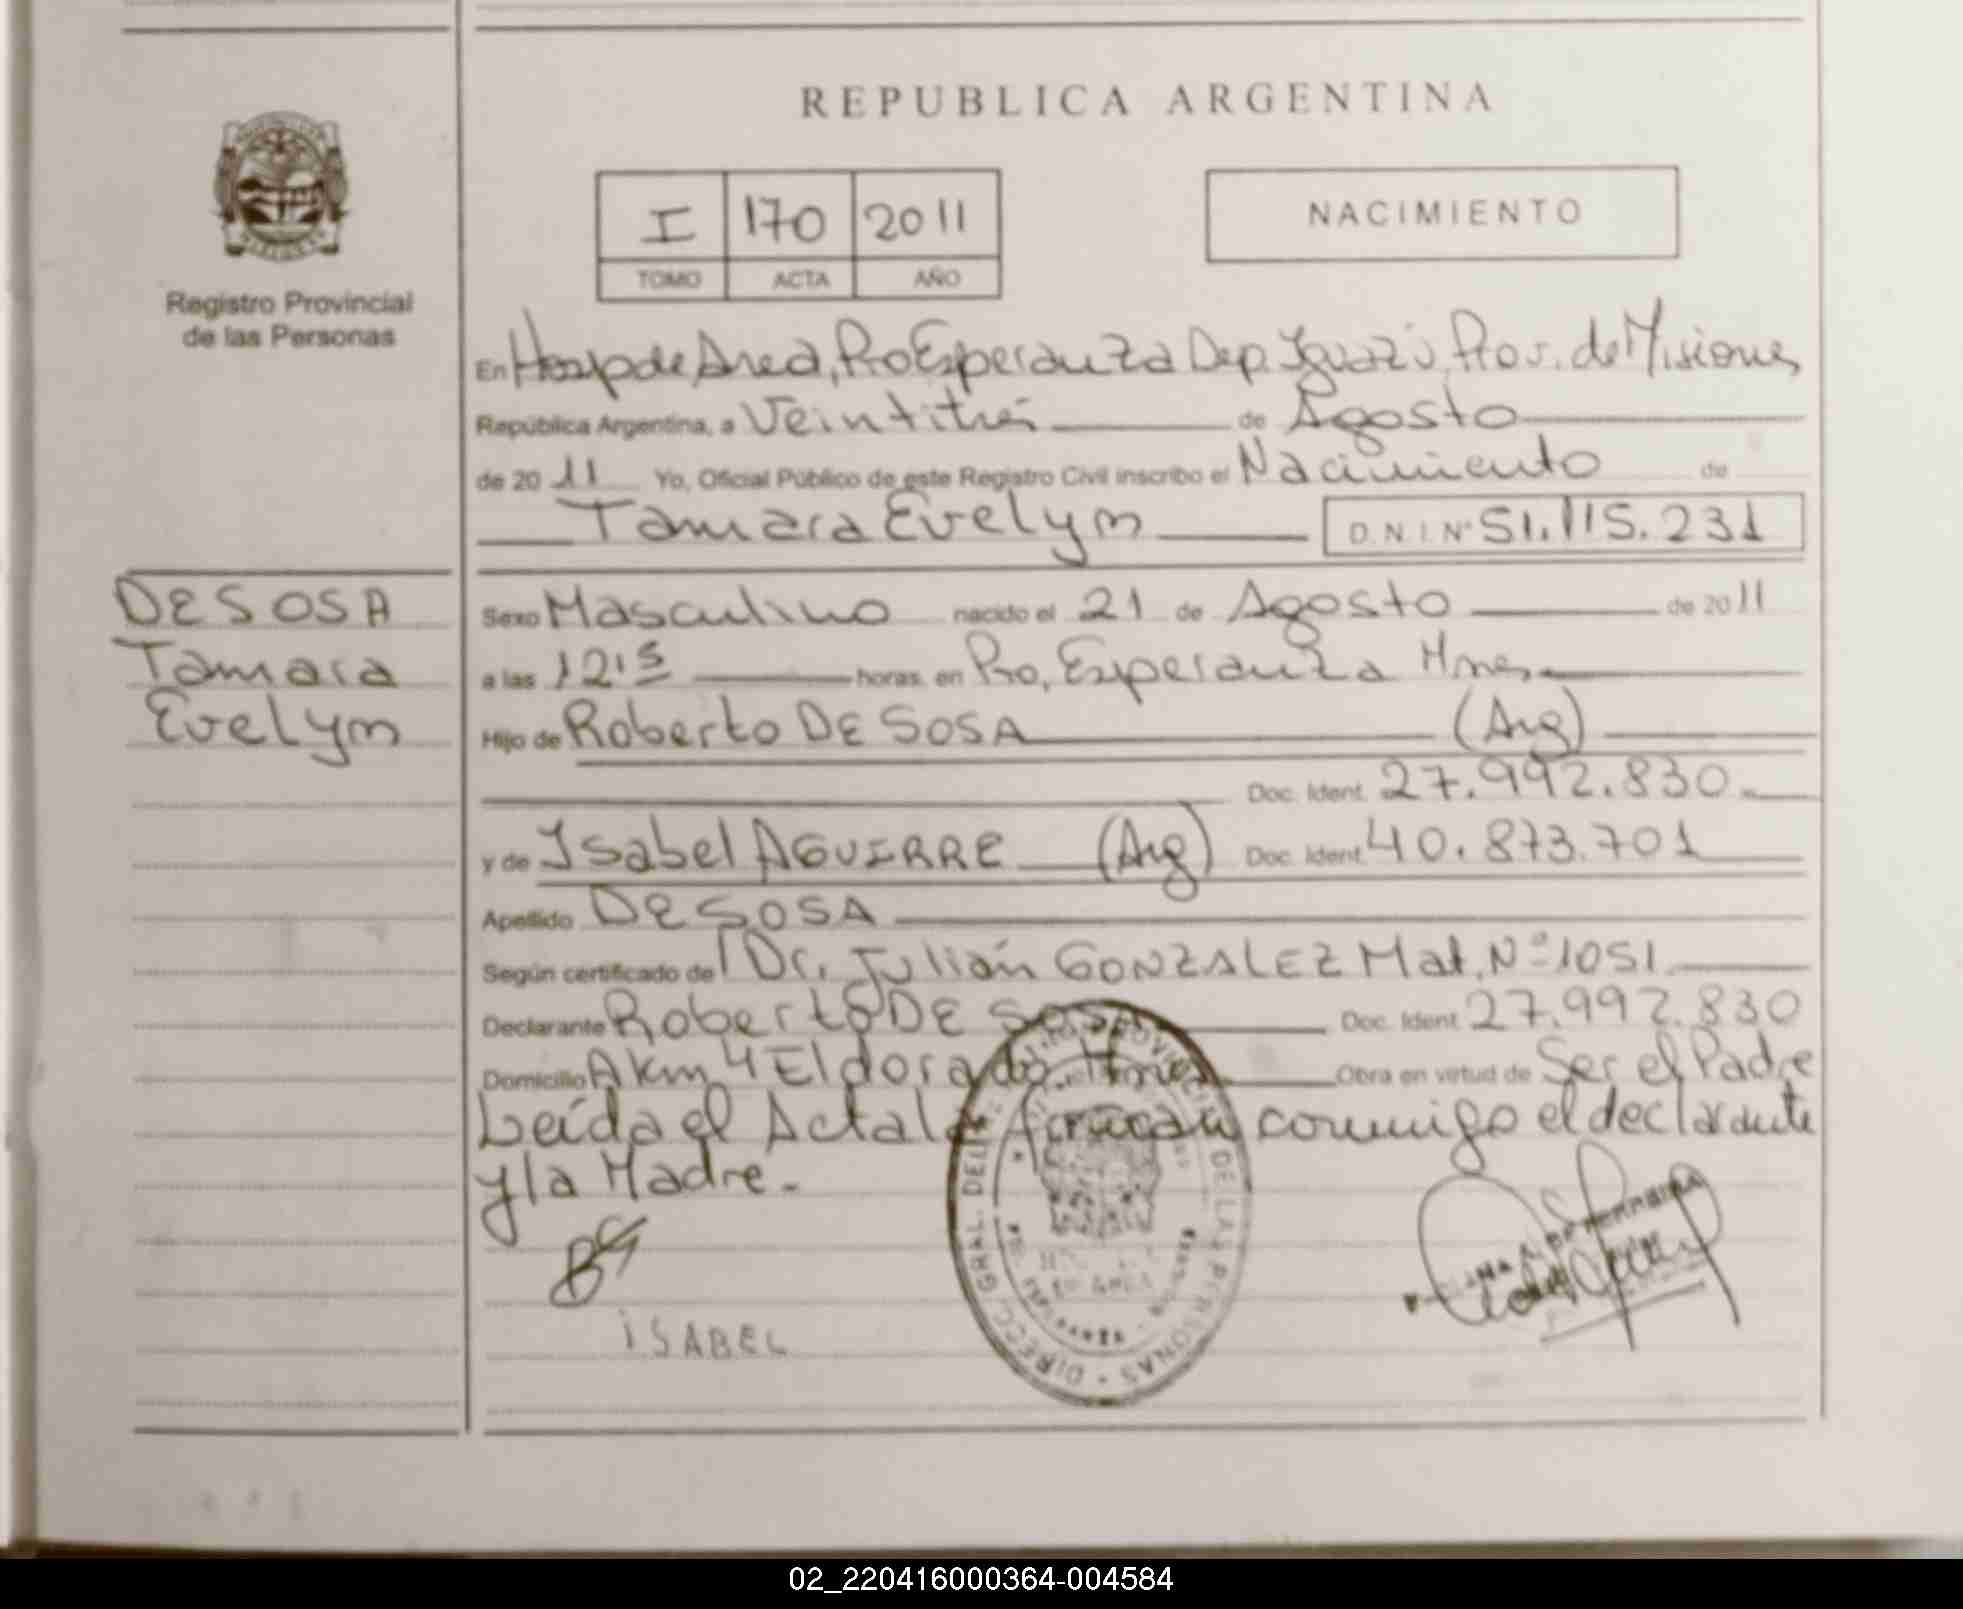 REPUBLICA ARGENTINA
I 170 2011
TOMO ACTA AÑO
NACIMIENTO
Registro Provincial
de las Personas
En Hosp de Area, Pto Esperanza Dep. Iguazú, Prov. de Misiones
República Argentina, a Veintitrés de Agosto
de 20 11 Yo, Oficial Público de este Registro Civil inscribo el Nacimiento de
Tamara Evelym D.N.I. Nº 51.115.231
DE SOSA
Tamara
Evelym
Sexo Masculino nacido el 21 de Agosto de 20 11
a las 12:15 horas, en Pto, Esperanza Mnes.
Hijo de Roberto DE SOSA (Arg)
Doc. Ident. 27.992.830.
y de Isabel AGUIRRE (Arg) Doc. Ident. 40.873.701
Apellido DE SOSA
Según certificado del Dr. Julián GONZALEZ Mat. Nº 1051
Declarante Roberto DE SOSA Doc. Ident. 27.992.830
Domicilio A km 4 Eldorado, Mnes. Obra en virtud de Ser el Padre
Leída el Acta la firman conmigo el declarante
y la Madre.-
ISABEL
DIRECC. GRAL. DEL REG. PROVINCIAL DE LAS PERSONAS
02_220416000364-004584